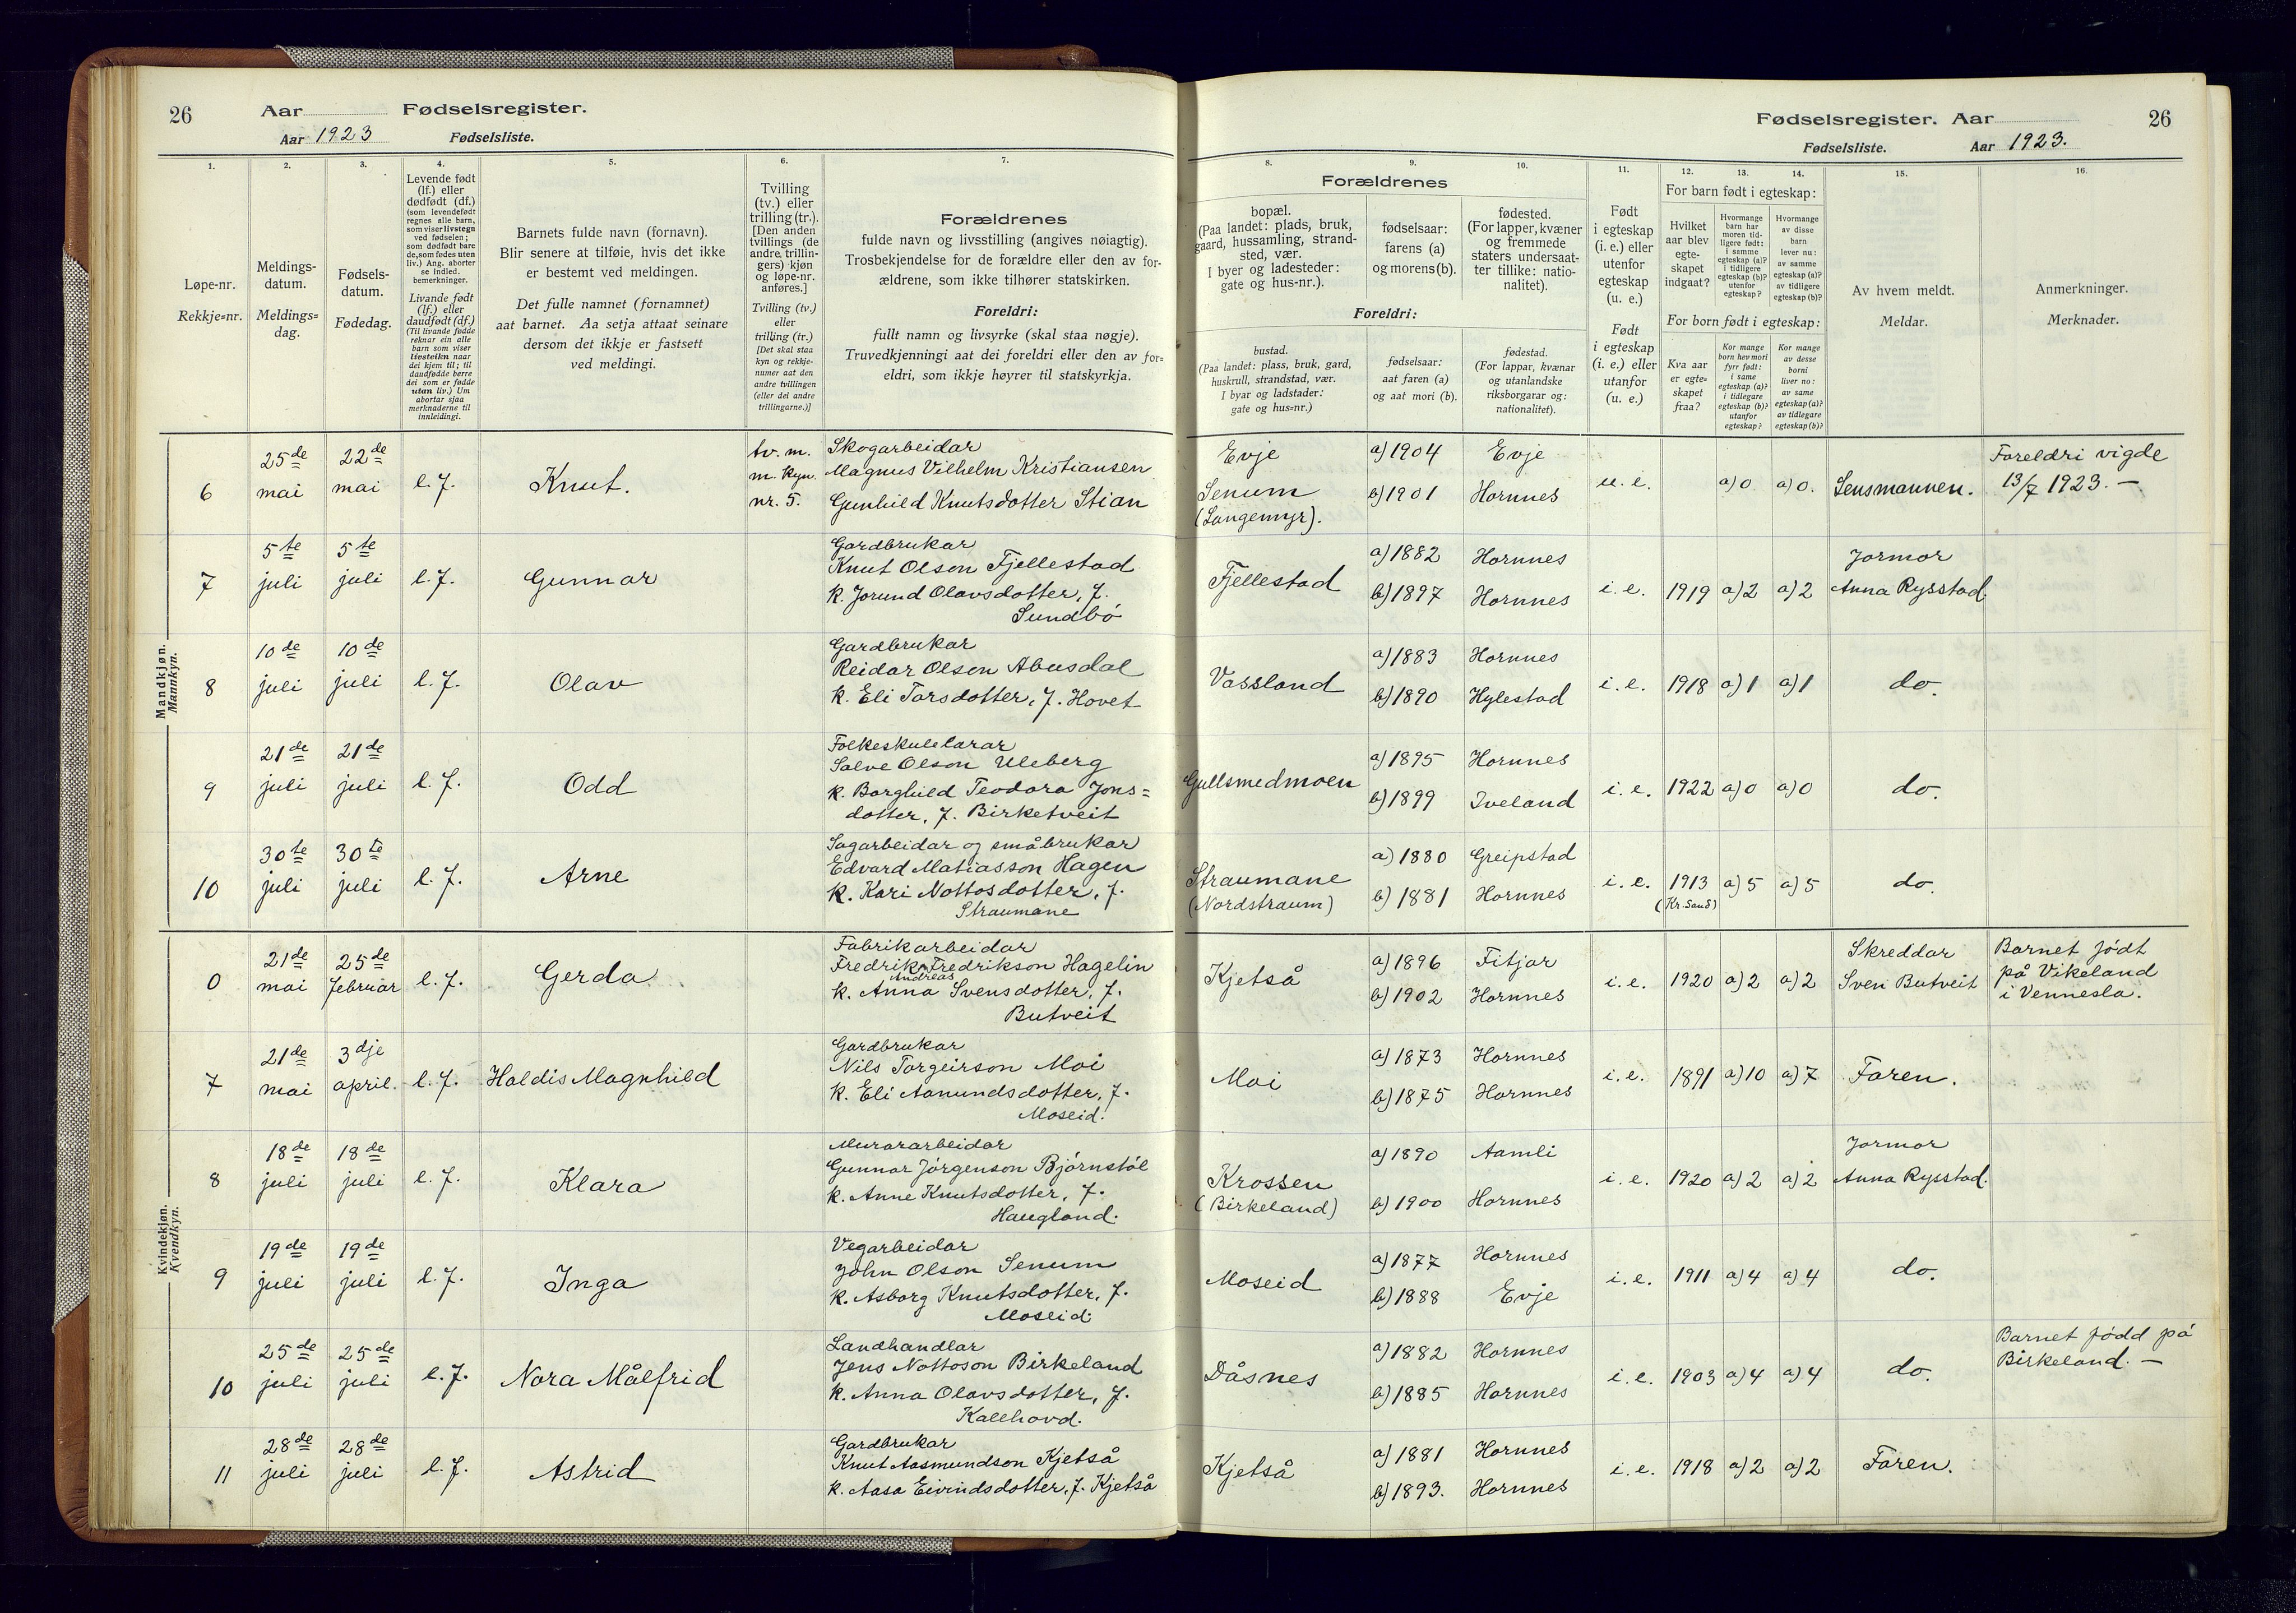 26 Aar Fødselsregister.
Aar 1923 Fødselsliste.
1. 2. 3. 4. 5. 6. 7.
Løpe-nr.
Rekkje=nr.
Meldings-
datum.
Meldings=
dag.
Fødsels-
datum.
Fødedag.
Levende født
(lf.) eller
dødfødt (df.)
(som levendefødt
regnes alle barn,
som viser livstegn
ved fødselen;
som dødfødt bare
de, som fødes uten
liv.) Ang. aborter
se indled.
bemerkninger.
Livande født
(lf.) eller
daudfødt (df.)
(Til livande fødde
reknar ein alle
barn som viser
livsteikn naar
dei kjem til; til
daudfødde berre
dei som er fødde
utan liv.) Um
abortar sjaa
merknaderne til
innleidingi.
Barnets fulde navn (fornavn).
Blir senere at tilføie, hvis det ikke
er bestemt ved meldingen.
Det fulle namnet (fornamnet)
aat barnet. Aa setja attaat seinare
dersom det ikkje er fastsett
ved meldingi.
Tvilling
(tv.) eller
trilling (tr.).
[Den anden
tvillings (de
andre, trillin-
gers) kjøn
og løpe-nr.
anføres.]
Tvilling (tv.)
eller
trilling (tr.)
[Det skal staa
kyn og rekkje-
numer aat den
andre tvillingen
(eller dei andre
trillingarne.)]
Forældrenes
fulde navn og livsstilling (angives nøiagtig).
Trosbekjendelse for de forældre eller den av for-
ældrene, som ikke tilhører statskirken.
Foreldri:
fullt namn og livsyrke (skal staa nøgje).
Truvedkjenningi aat dei foreldri eller den av for=
eldri, som ikkje høyrer til statskyrkja.
Mandkjøn.
Mannkyn.
6
25de
mai
22de
mai
l. f.
Knut.
tv. m.
m. kyn.
nr. 5.
Skogarbeidar
Magnus Vilhelm Kristiansen
Gunhild Knutsdotter Stian
7
5te
juli
5te
juli
l. f.
Gunnar
Gardbrukar
Knut Olson Fjellestad
k. Jorund Olavsdotter, f.
Sundbö
8
10de
juli
10de
juli
l. f.
Olav
Gardbrukar
Reidar Olson Abusdal
k. Eli Tarsdotter, f. Hovet
9
21de
juli
21de
juli
l. f.
Odd
Folkeskulelærar
Salve Olson Uleberg
k. Borghild Teodora Jons=
dotter, f. Birketveit
10
30te
juli
30te
juli
l. f.
Arne
Sagarbeidar og småbrukar
Edvard Matiasson Hagen
k. Kari Nottosdotter, f.
Straumane
Kvindekjøn.
Kvendkyn.
0
21de
mai
25de
februar
l. f.
Gerda
Fabrikarbeidar
Fredrik Fredrikson Hagelin
Andreas
k. Anna Svensdotter, f.
Butveit
7
21de
mai
3dje
april.
l. f.
Haldis Magnhild
Gardbrukar
Nils Torgeirson Moi
k. Eli Aanundsdotter, f.
Moseid.
8
18de
juli
18de
juli
l. f.
Klara
Murararbeidar
Gunnar Jörgenson Björnstöl
k. Anne Knutsdotter, f.
Haugland.
9
19de
juli
19de
juli
l. f.
Inga
Vegarbeidar
John Olson Senum
k. Asborg Knutsdotter, f.
Moseid.
10
25de
juli
25de
juli
l. f.
Nora Målfrid
Landhandlar
Jens Nottoson Birkeland
k. Anna Olavsdotter, f.
Kallhovd.
11
28de
juli
28de
juli
l. f.
Astrid
Gardbrukar
Knut Aasmundson Kjetså
k. Aasa Eivindsdotter, f. Kjetså
Fødselsregister. Aar 26
Fødselsliste. Aar 1923.
8. 9. 10. 11. 12. 13. 14. 15. 16.
Forældrenes
bopæl.
(Paa landet: plads, bruk,
gaard, hussamling, strand-
sted, vær.
I byer og ladesteder:
gate og hus-nr.).
fødselsaar:
farens (a)
og morens (b).
fødested.
(For lapper, kvæner
og fremmede
staters undersaat-
ter tillike: natio-
nalitet).
Foreldri:
bustad.
(Paa landet: plass, bruk, gard,
huskrull, strandstad, vær.
I byar og ladstader:
gate og hus=nr.)
fødselsaar:
aat faren (a)
og aat mori (b).
fødestad.
(For lappar, kvænar
og utanlandske
riksborgarar og:
nationalitet).
Født
i egteskap
(i. e.) eller
utenfor
egteskap
(u. e.)
Født
i egteskap
(i. e.) eller
utanfor
(u. e.)
For barn født i egteskap:
Hvilket
aar blev
egte-
skapet
indgaat?
Hvormange
barn har
moren tid-
ligere født:
i samme
egteskap (a)?
i tidligere
egteskap (b)?
utenfor
egteskap?
Hvormange
av disse
barn
lever nu:
av samme
egteskap (a)?
av tidligere
egteskap (b)?
For born født i egteskap:
Kva aar
er egte=
skapet
fraa?
Kor mange
born hev mori
fyrr født:
i same
egteskap (a)?
i tidlegare
egteskap (b)?
utanfor
egteskap?
Kor mange
av desse
borni
liver no:
av same
egteskap (a)?
av tidlegare
egteskap (b)?
Av hvem meldt.
Meldar.
Anmerkninger.
Merknader.
Evje
Senum
(Langemyr).
a) 1904
b) 1901
Evje
Hornnes
u. e.
a) 0 a) 0.
Lensmannen.
Foreldri vigde
13/7 1923. —
Fjellestad
a) 1882
b) 1897
Hornnes
Hornnes
i. e. 1919 a) 2 a) 2
Jormor
Anna Rysstad.
Vassland
a) 1883
b) 1890
Hornnes
Hylestad
i. e. 1918 a) 1 a) 1 do.
Gullsmedmoen
a) 1895
b) 1899
Hornnes
Iveland
i. e. 1922 a) 0 a) 0 do.
Straumane
(Nordstraum)
a) 1880
b) 1881
Greipstad
Hornnes
i. e. 1913 a) 5 a) 5 do.
(Kr.sand)
Kjetså
a) 1896
b) 1902
Fitjar
Hornnes
i. e. 1920 a) 2 a) 2
Skreddar
Sven Butveit
Barnet födt
på Vikeland
i Vennesla.
Moi
a) 1873
b) 1875
Hornnes
Hornnes
i. e. 1891 a) 10 a) 7 Faren.
Krossen
(Birkeland)
a) 1890
b) 1900
Aamli
Hornnes
i. e. 1920 a) 2 a) 2
Jormor
Anna Rysstad.
Moseid
a) 1877
b) 1888
Hornnes
Evje
i. e. 1911 a) 4 a) 4 do.
Dåsnes
a) 1882
b) 1885
Hornnes
Hornnes
i. e. 1903 a) 4 a) 4 do.
Barnet född på
Birkeland. —
Kjetså
a) 1881
b) 1893.
Hornnes
Hornnes
i. e. 1918 a) 2 a) 2 Faren.